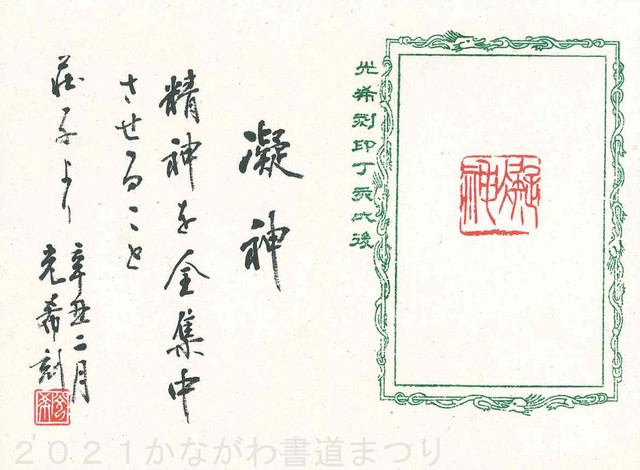 光希刻印丁亥以後
凝神
凝神
精神を全集中
させること
荘子より
辛丑二月
光希刻
光希
2021かながわ書道まつり